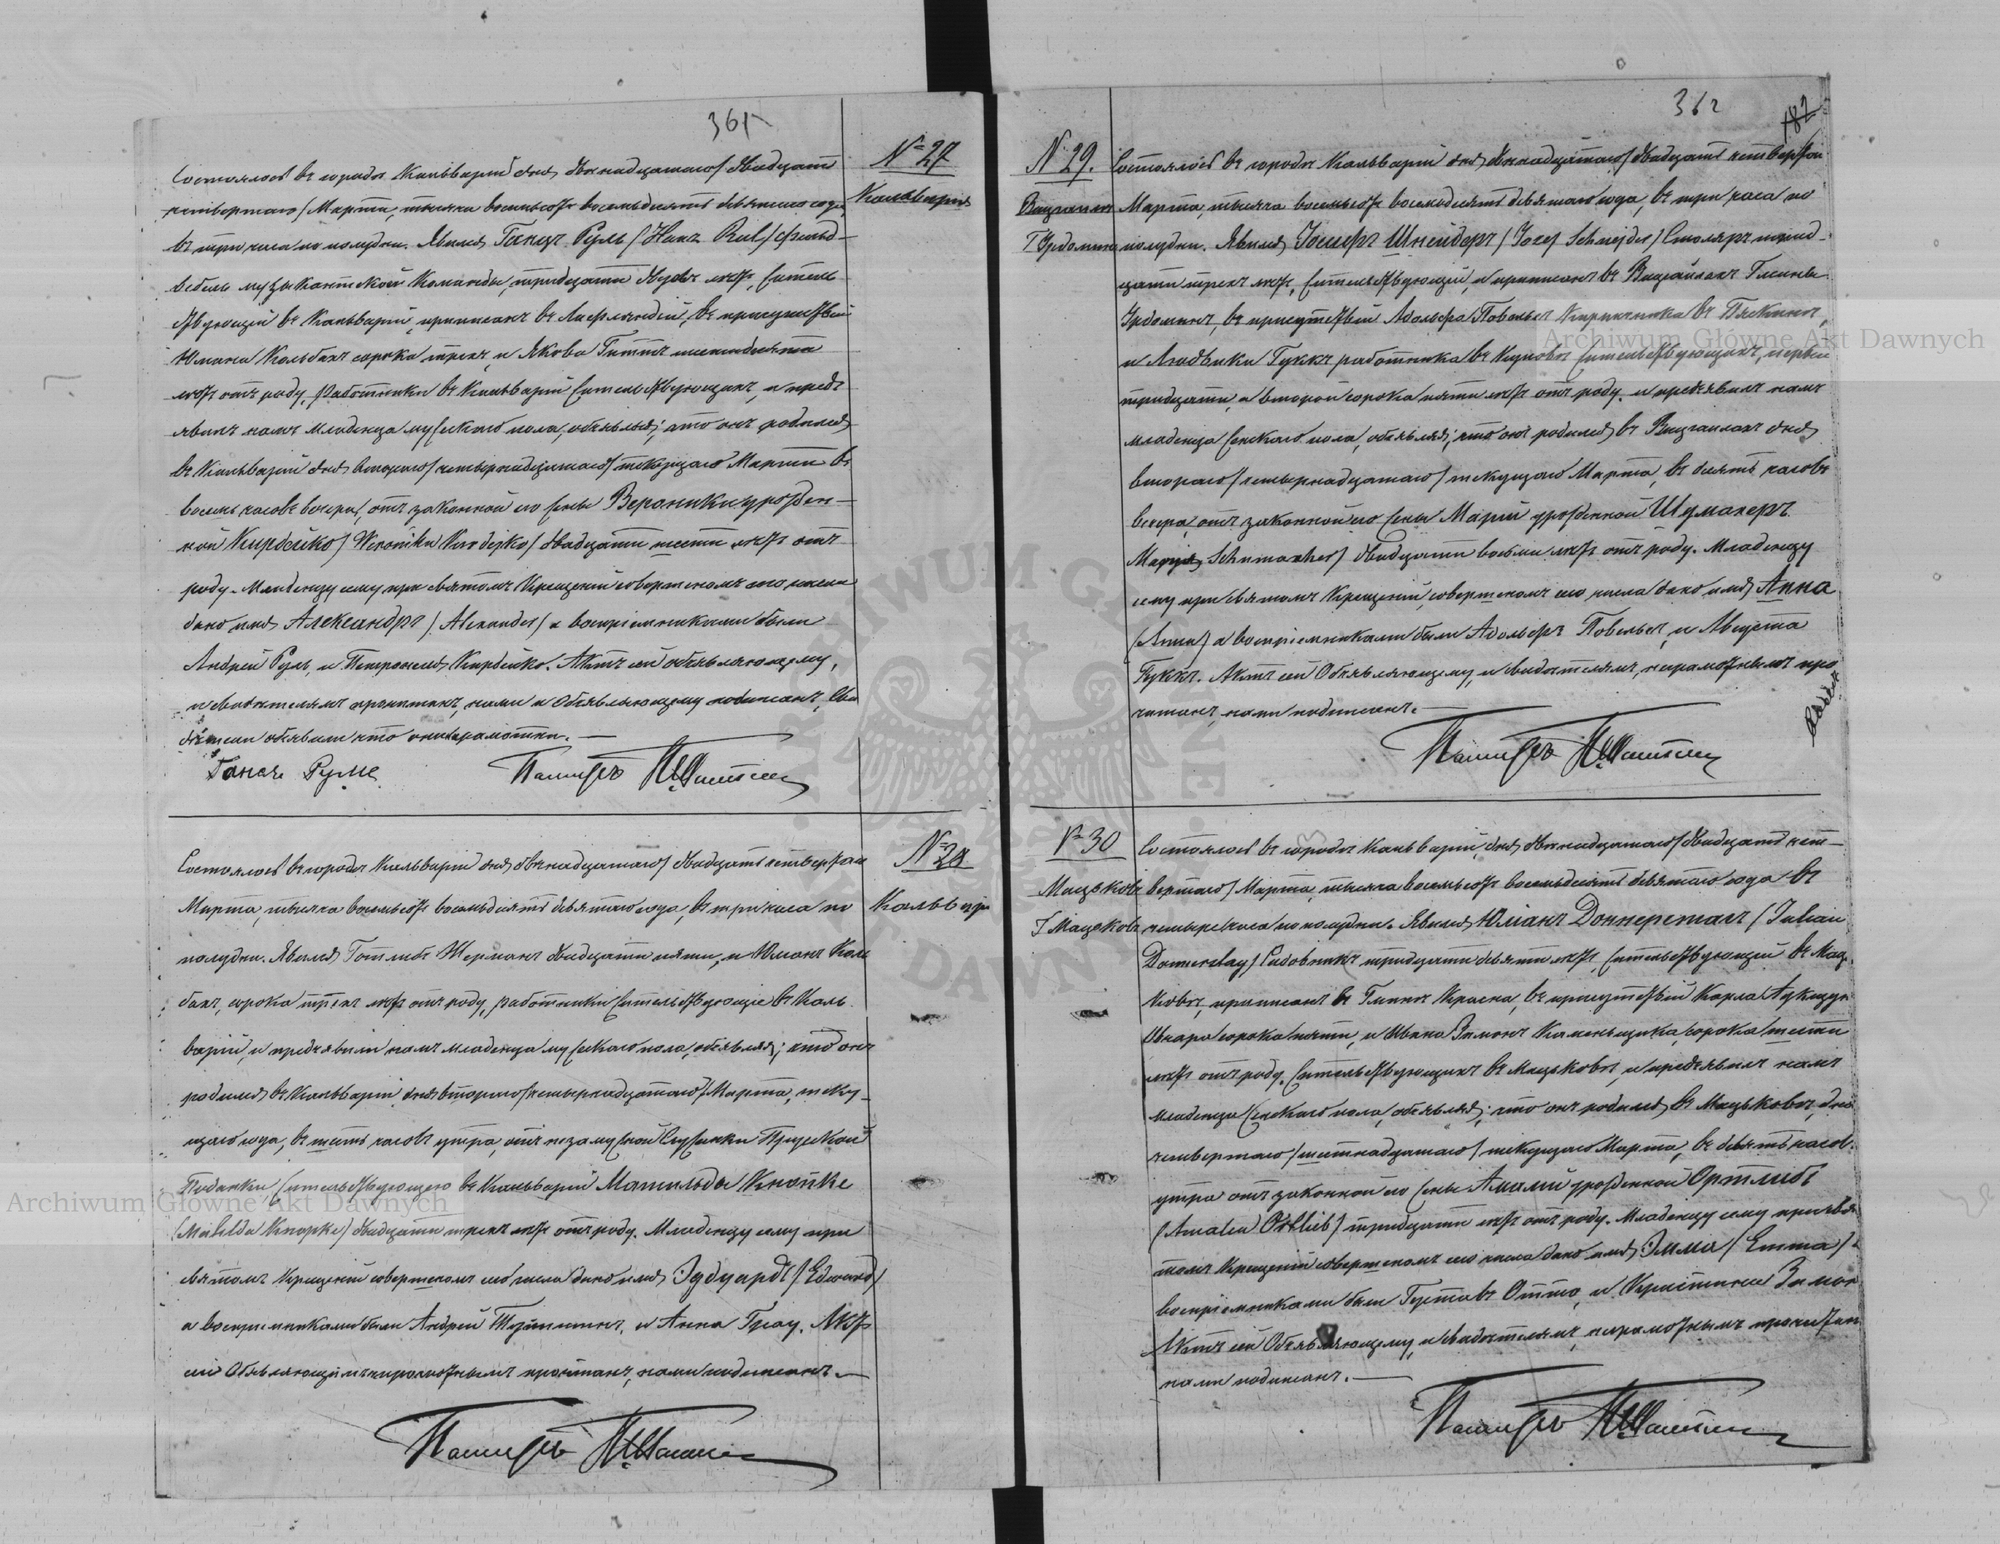 361
№ 27
Кальварія
Состоялось въ городѣ Кальваріи дня двѣнадцатаго/двадцать
четвертаго/Марта, тысяча восемьсотъ восемьдесятъ девятаго года,
въ три часа по полудни. Явился Гансъ Руль /Hans Rul/ фельд-
вебель музыкантской команды, тридцати двухъ лѣтъ, житель-
ствующій въ Кальваріи, приписанъ въ Лифляндіи, въ присутствіи
Юліана Кольбахъ сорока трехъ, и Якова шестидесяти
лѣтъ отъ роду, работники въ Кальваріи жительствующихъ, и предъ-
явилъ намъ младенца мужескаго пола, объявляя; что онъ родился
въ Кальваріи дня втораго/четырнадцатаго/текущаго Марта въ
восемь часовъ вечера, отъ законной его жены Вероники урожден-
ной Кирдейко/ Weronika Kirdejko/ двадцати шести лѣтъ отъ
роду. Младенцу сему при святомъ Крещеніи совершономъ сего числа
дано имя Александръ /Alexander/ а воспріемниками были
Андрей Руль, и Петронеля Кирдейко. Актъ сей объявляющему,
и свидѣтелямъ прочитанъ, нами и Объявляющему подписанъ, Сви
дѣтели объявили что они неграмотны. —
Гансъ Руль
Пасторъ
№ 28
Кальварія
Состоялось въ городѣ Кальваріи дня двѣнадцатаго/двадцать четвертаго
Марта, тысяча восемьсотъ восемьдесятъ девятаго года, въ три часа по
полудни. Явился Готлибъ Шерманъ двадцати пяти, и Юліанъ Коль
бахъ, сорока трехъ лѣтъ отъ роду, работники жительствующіе въ Каль-
варіи, и предъявили намъ младенца мужескаго пола, объявляя; что онъ
родился въ Кальваріи дня втораго/четырнадцатаго/Марта, теку-
щаго года, въ шесть часовъ утра, отъ незамужной Служанки Прусской
Подданки жительствующею въ Кальваріи Матильды Кнопке
/Matilda Knopke/ двадцати трехъ лѣтъ отъ роду. Младенцу сему при
святомъ Крещеніи совершономъ сего числа дано имя Эдуардъ /Edward/
а воспріемниками были Андрей и Анна Грау. Актъ
сей Объявляющимъ неграмотнымъ прочитанъ, нами подписанъ. —
Пасторъ
362
182
№ 29.
Вицгайлы
Г Урдомина
Состоялось въ городѣ Кальваріи дня двѣнадцатаго/двадцать четвертаго
Марта, тысяча восемьсотъ восемьдесятъ девятаго года, въ три часа по
полудни. Явился Іосифъ Шнейдеръ /Jozef Schnejder/ Столяръ трид-
цати трехъ лѣтъ, жительствующій, и приписанъ въ Вицгайлахъ Гмины
Урдоминъ, въ присутствіи Адольфа Кирпичника въ
и Людвика Гуккъ работника въ жительствующихъ, первый
тридцати, а второй сорока пяти лѣтъ отъ роду. и предъявилъ намъ
младенца женскаго пола, объявляя; что онъ родился въ Вицгайлахъ дня
втораго/четырнадцатаго/текущаго Марта, въ часовъ
вечера, отъ законной его жены Маріи урожденной Шумахеръ
Marya Schumacher/ двадцати восьми лѣтъ отъ роду. Младенцу
сему при святомъ Крещеніи, совершономъ сего числа дано имя Анна
/Anna/ а воспріемниками были Адольфъ и Августа
Гуккъ. Актъ сей Объявляющему, и свидѣтелямъ, неграмотнымъ про
читанъ, нами подписанъ. —
Пасторъ
№ 30
Мацьковъ
Г Мацьковъ
Состоялось въ городѣ Кальваріи, дня двѣнадцатаго/двадцать чет-
вертаго/Марта, тысяча восемьсотъ восемьдесятъ девятаго года въ
четыре часа по полудни. Явился Юліанъ Доннерстагъ /Julian
Donnerstag/ Садовникъ тридцати девяти лѣтъ, жительствующій въ Маць-
ковѣ, приписанъ въ Гминѣ Красна, въ присутствіи Карла
сорока пяти, и Ивана Зимонъ Каменьщика, сорока шести
лѣтъ отъ роду, жительствующихъ въ Мацьковѣ, и предъявилъ намъ
младенца женскаго пола, объявляя; что онъ родился въ Мацьковѣ, дня
четвертаго/шестнадцатаго/текущаго Марта, въ девять часовъ
утра отъ законной его жены Амаліи урожденной Ортлибъ
/Amalia Ortlieb/ тридцати лѣтъ отъ роду. Младенцу сему при свя
томъ Крещеніи совершономъ сего числа дано имя Эмма /Emma/ а
воспріемниками были Густавъ Отто, и Кристина Зимонъ
Актъ сей Объявляющему, и свидѣтелямъ, неграмотнымъ прочитанъ
нами подписанъ. —
Пасторъ
Archiwum Główne Akt Dawnych
Archiwum Główne Akt Dawnych